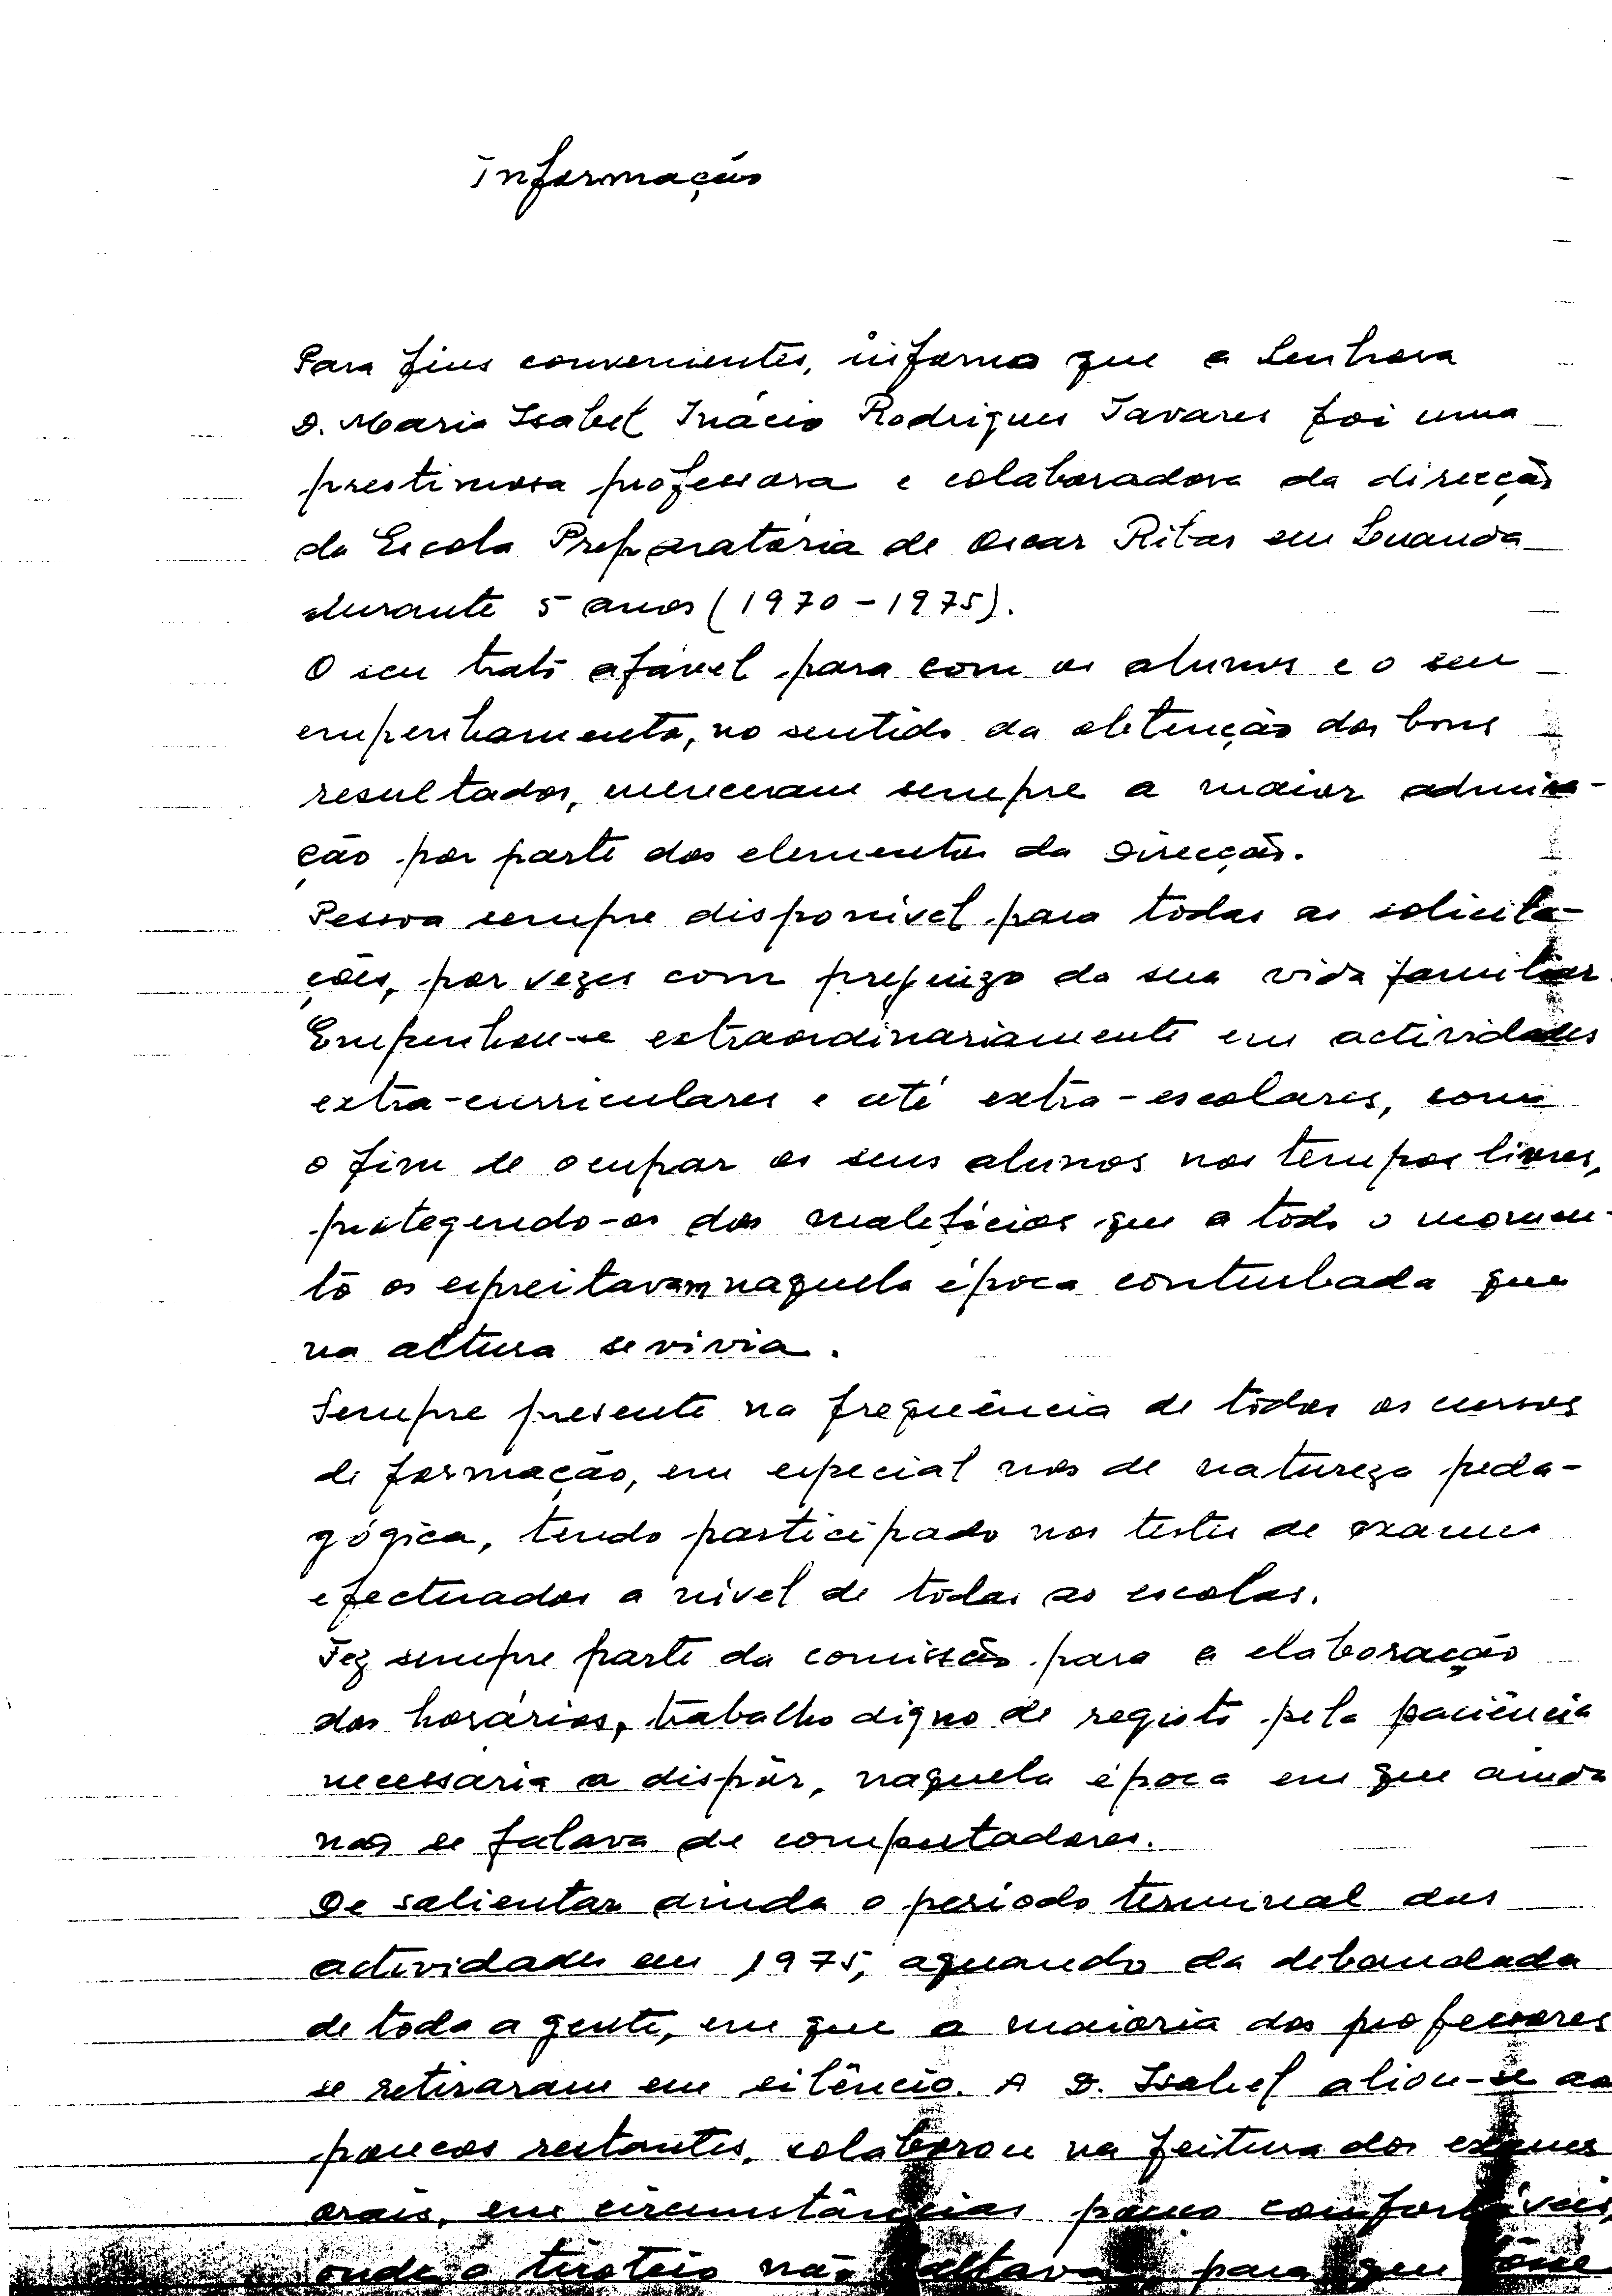 informação
Para fins convenientes, informo que a Senhora
D. Maria Isabel Inácio Rodrigues Tavares foi uma
prestimosa professora e colaboradora da direcção
da Escola Preparatória de Oscar Ribas em Luanda
durante 5 anos (1970-1975).
O seu trato afável para com os alunos e o seu
empenhamento, no sentido da obtenção dos bons
resultados, mereceram sempre a maior admira-
ção por parte dos elementos da Direcção.
Pessoa sempre disponível para todas as solicita-
ções, por vezes com prejuizo da sua vida familiar.
Empenhou-se extraordinariamente em actividades
extra-curriculares e até extra-escolares, com
o fim de ocupar os seus alunos nos tempos livres,
protegendo-os dos malefícios que a todo o momen-
to os espreitavam naquela época conturbada que
na altura se vivia.
Sempre presente na frequência de todos os cursos
de formação, em especial nos de natureza peda-
gógica, tendo participado nos testes de exames
efectuados a nível de todas as escolas.
Fez sempre parte da comissão para a elaboração
dos horários, trabalho digno de registo pela paciência
necessária a dispôr, naquela época em que ainda
não se falava de computadores.
De salientar ainda o período terminal das
actividades em 1975, aquando da debandada
de toda a gente, em que a maioria dos professores
se retiraram em silêncio. A D. Isabel aliou-se ao
poucos restantes, colaborou na feitura dos exames
orais, em circunstâncias pouco confortáveis,
onde o tiroteio não faltava, para que